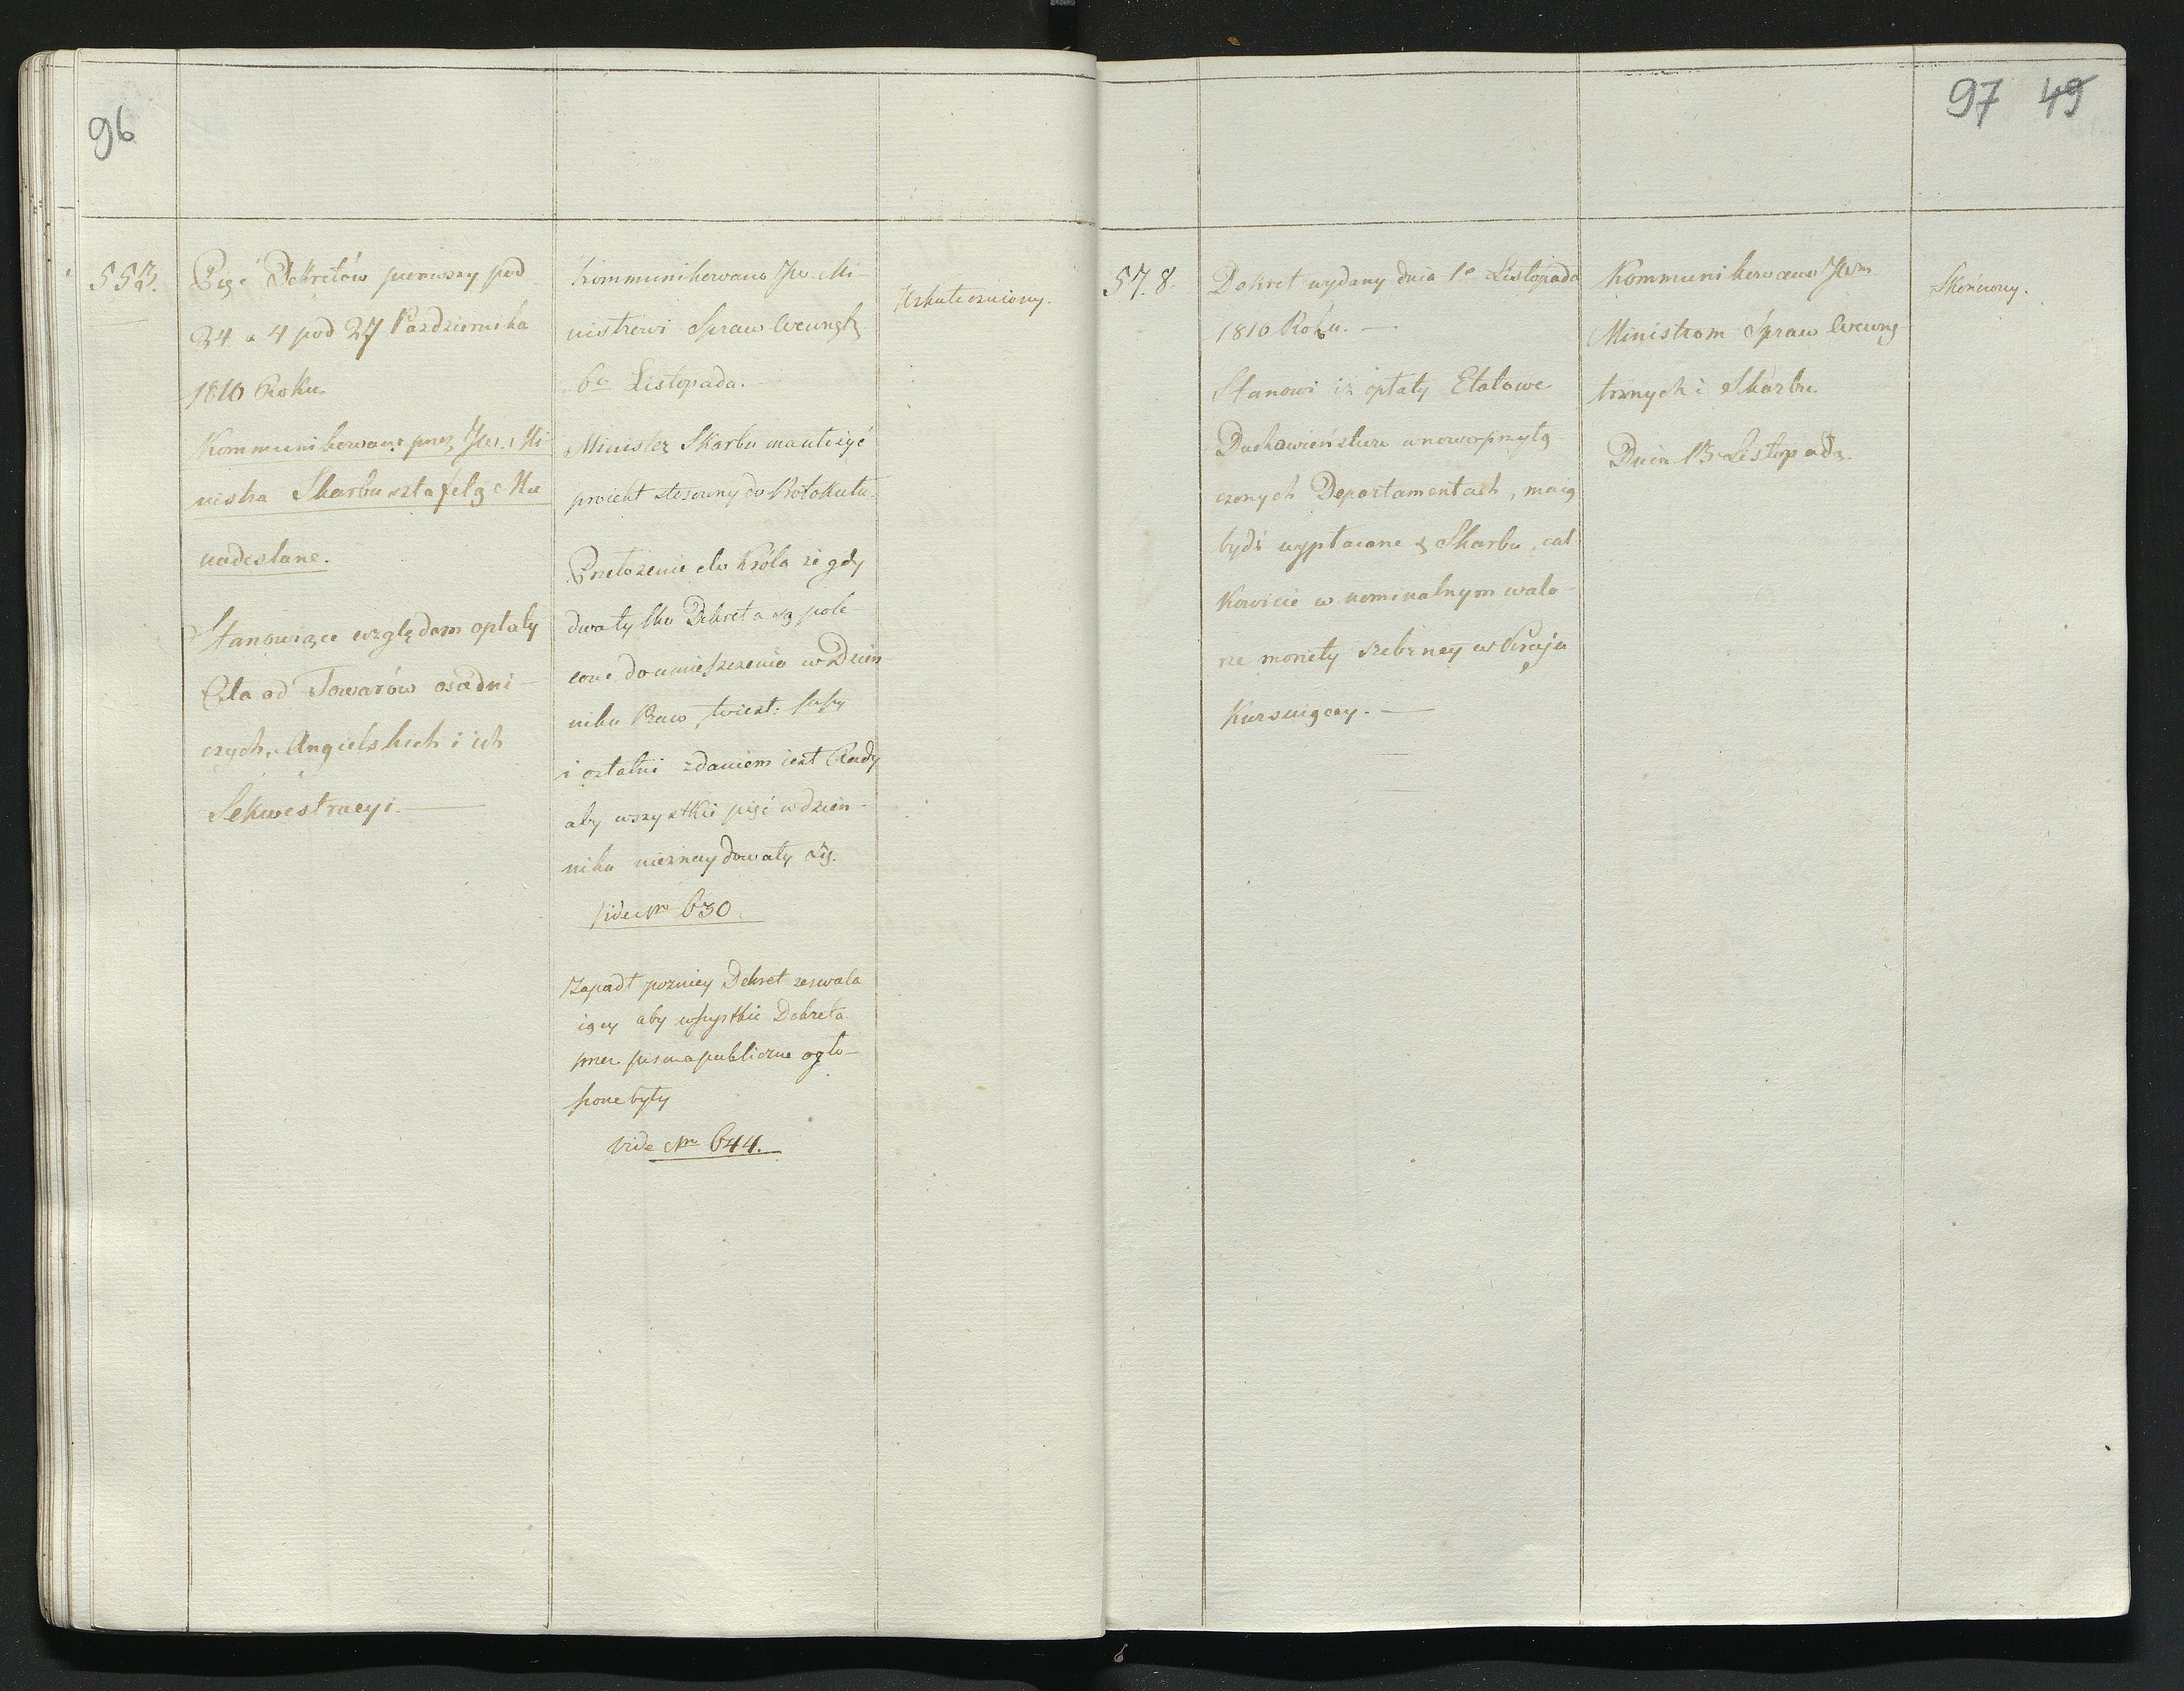 96
553.
Pięć Dekretów pierwszy pod
24 a 4 pod 27 Pazdziernika
1810 Roku.
Kommunikowane przez JW. Mi
nistra Skarbu sztafetą Mu
nadesłane.
Stanowiące względem opłaty
Cła od Towarów osadni-
czych, Angielskich i ich
Sekwestracyi.
Kommunikowano JW. Mi-
nistrowi Spraw Wewnętz
6º Listopada.
Minister Skarbu ma ułożyć
proiekt stosowny do Protokułu.
Przełożenie do Króla że gdy
dwa tylko Dekreta są pole-
cone do umieszczenia w Dzien-
niku Praw, to iest:
i ostatni zdaniem iest Rady
aby wszystkie pięć w dzien-
niku nieznaydowały się.
vide Nro 630.
Zapadł pozniey Dekret zezwala
iący aby wszystkie Dekreta
przez pisma publiczne ogło-
szone były
vide Nro 644.
Uskuteczniony.
97 49
578.
Dekret wydany dnia 1º Listopada
1810 Roku.
Stanowi iż opłaty Etatowe
Duchowieństwu w nowo-przyłą-
czonych Departamentach, maią
bydź wypłacone z Skarbu, cał
kowicie w nominalnym walo-
rze monety srebrney w Kraju
Kursuiącey.
Kommunikowano JWm
Ministrom Spraw Wewnę-
trznych i Skarbu.
Dnia 13 Listopada.
Skończony.